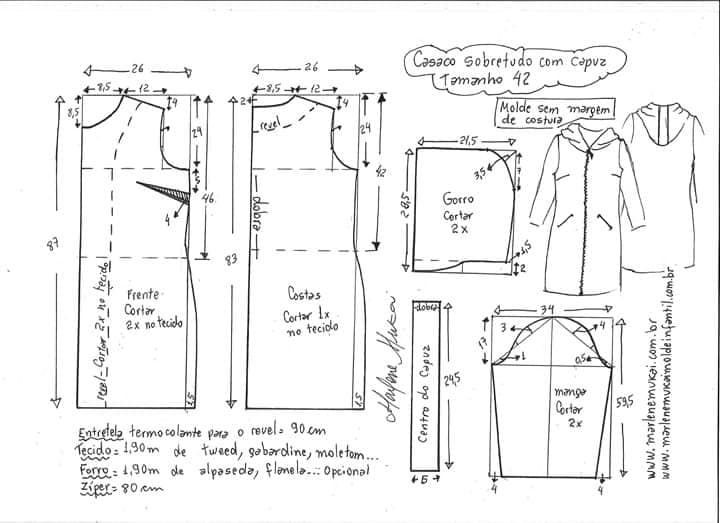 Casaco sobretudo com capuz
Tamanho 42
Molde sem margem
de costura
26
8,5
12
4
8,5
7
24
5
46
4
87
revel_Cortar_2x no tecido
Frente
Cortar
2x no tecido
1,5
26
8,5
12
2
4
revel
7
24
42
dobra
83
Costas
Cortar 1x
no tecido
1,5
21,5
3,5
7
28,5
Gorro
Cortar
2x
1,5
2
dobra
Centro do Capuz
24,5
5
34
3
4
17
1
0,5
manga
Cortar
2x
59,5
4
4
Marlene Mukai
www.marlenemukai.com.br
www.marlenemukaimoldeinfantil.com.br
Entretela termocolante para o revel = 90cm
Tecido = 1,90m de tweed, gabardine, moletom...
Forro = 1,90m de alpaseda, flanela... Opcional
Zíper = 80cm